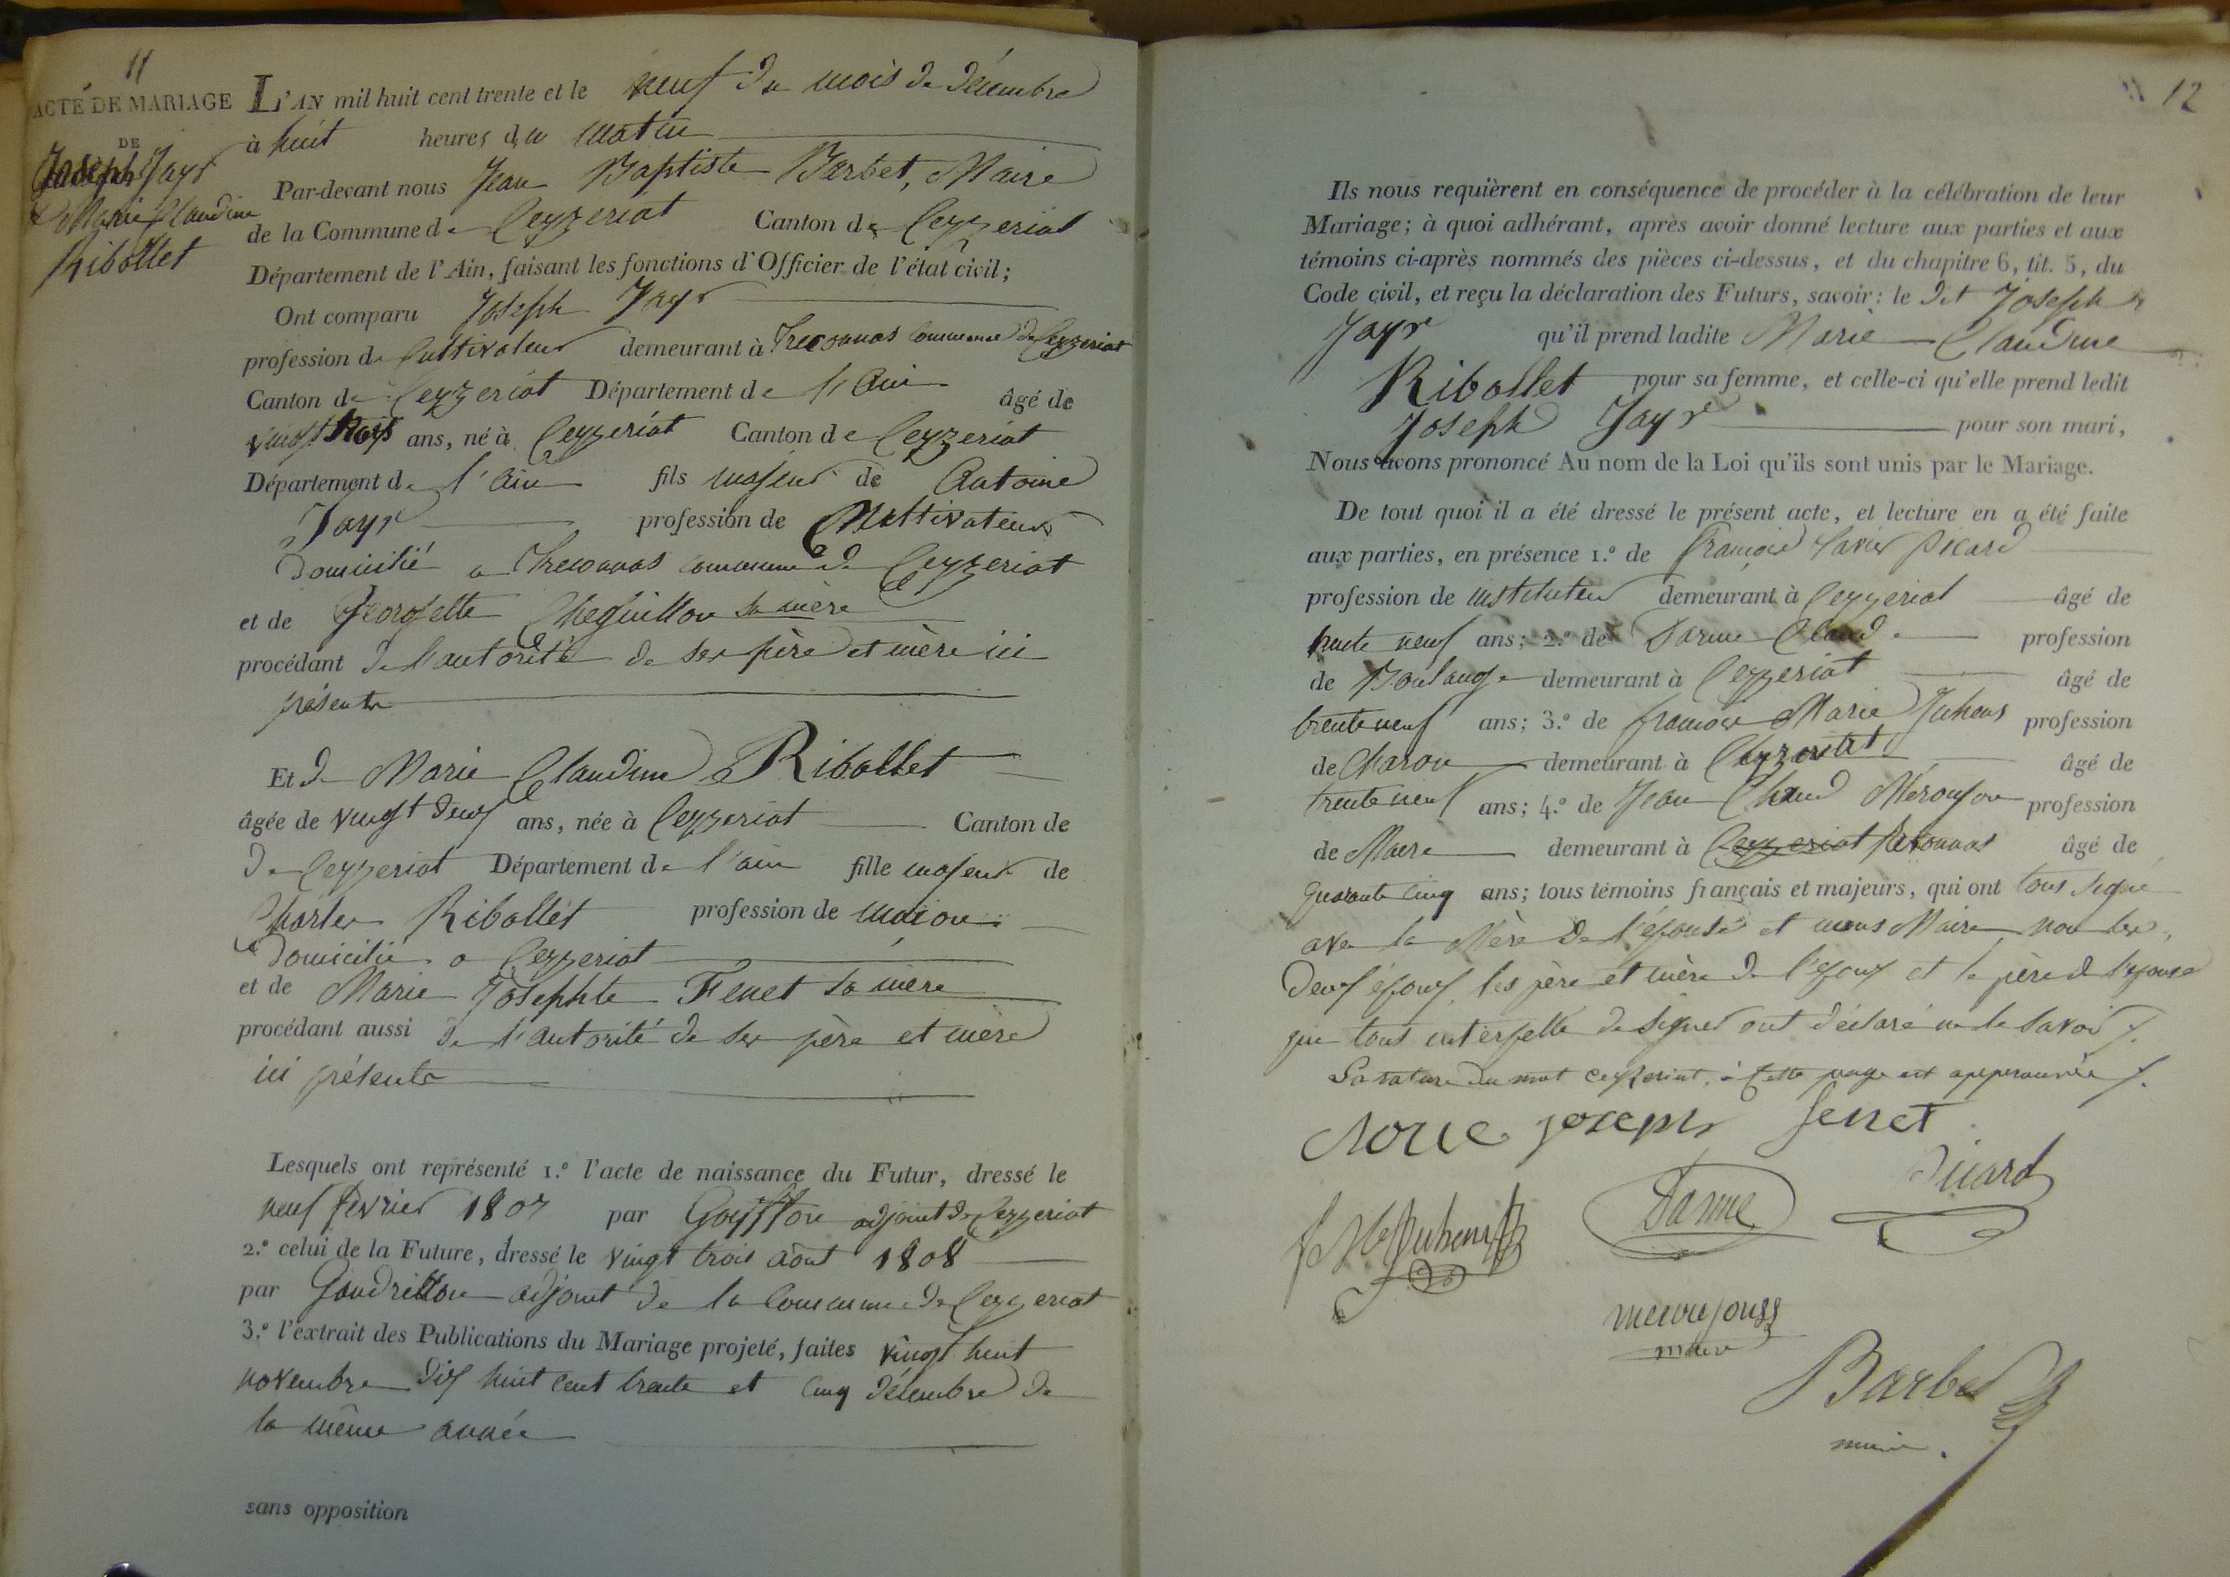 11
ACTE DE MARIAGE
DE
Joseph Jayr
& Marie Claudine
Ribollet
L'AN mil huit cent trente et le neuf du mois de décembre
à huit heures du matin
Par-devant nous Jean Baptiste Barbet, Maire
de la Commune de Ceyzeriat Canton de Ceyzeriat
Département de l'Ain, faisant les fonctions d'Officier de l'état civil;
Ont comparu Joseph Jayr
profession de Cultivateur demeurant à Treconnas commune de Ceyzeriat
Canton de Ceyzeriat Département de l'Ain âgé de
vingt trois ans, né à Ceyzeriat Canton de Ceyzeriat
Département de l'Ain fils majeur de Antoine
Jayr profession de Cultivateur
domicilié à Treconnas commune de Ceyzeriat
et de Georgette Cheguillon sa mère
procédant de l'autorité de ses père et mère ici
présents
Et de Marie Claudine Ribollet
âgée de vingt deux ans, née à Ceyzeriat Canton de
de Ceyzeriat Département de l'ain fille majeure de
Charles Ribollet profession de maçon
domicilié à Ceyzeriat
et de Marie Josephte Fenet sa mère
procédant aussi de l'autorité de ses père et mère
ici présents
Lesquels ont représenté 1.° l'acte de naissance du Futur, dressé le
neuf février 1807 par Goyffon adjoint de Ceyzeriat
2.° celui de la Future, dressé le vingt trois août 1808
par Gaudrillon adjoint de la Commune de Ceyzeriat
3.° l'extrait des Publications du Mariage projeté, faites vingt huit
novembre dix huit cent trente et cinq décembre de
la même année
sans opposition
12
Ils nous requièrent en conséquence de procéder à la célébration de leur
Mariage; à quoi adhérant, après avoir donné lecture aux parties et aux
témoins ci-après nommés des pièces ci-dessus, et du chapitre 6, tit. 5, du
Code civil, et reçu la déclaration des Futurs, savoir: le dit Joseph
Jayr qu'il prend ladite Marie Claudine
Ribollet pour sa femme, et celle-ci qu'elle prend ledit
Joseph Jayr pour son mari,
Nous avons prononcé Au nom de la Loi qu'ils sont unis par le Mariage.
De tout quoi il a été dressé le présent acte, et lecture en a été faite
aux parties, en présence 1.° de François Xavier Picard
profession de instituteur demeurant à Ceyzeriat âgé de
trente neuf ans; 2.° de Darme Claude profession
de Boulanger demeurant à Ceyzeriat âgé de
trente neuf ans; 3.° de François Marie Juhens profession
de Charon demeurant à Ceyzeriat âgé de
trente neuf ans; 4.° de Jean Claud Méroujou profession
de Maere demeurant à Ceyzeriat Revonnas âgé de
quarante cinq ans; tous témoins français et majeurs, qui ont tous signé
avec la Mère de l'épouse et nous Maire, non les
deux époux, les père et mère de l'époux et le père de l'épouse
que tous interpellé de signer ont déclaré ne le savoir
La rature du mot ceyzeriat, à cette page est approuvée
joseph fenet
Picard
Darme
meroujouss
maire
Barbet
maire.